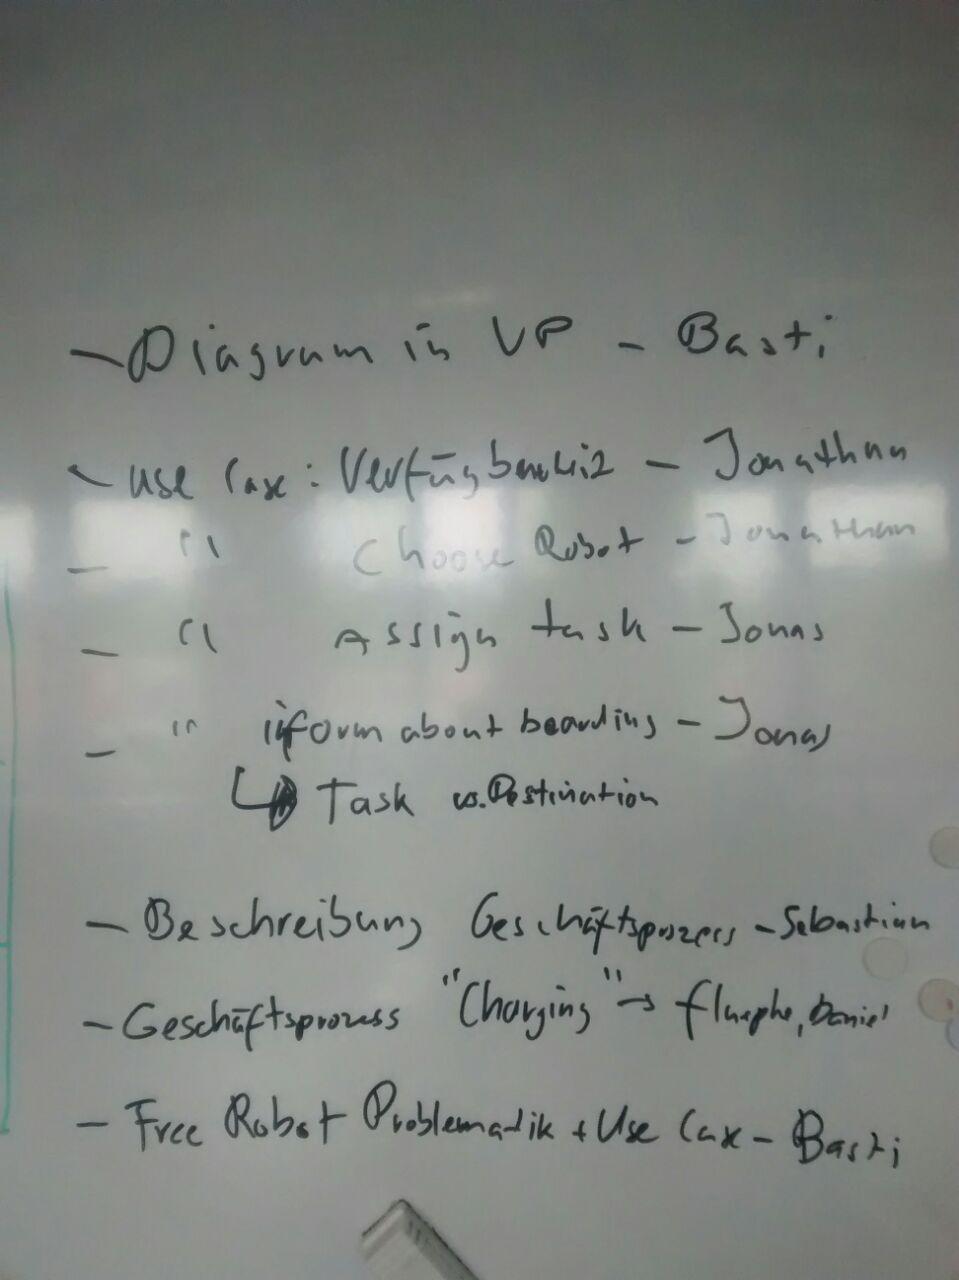 - Diagram in VP - Basti
- Use Case: Verfügbarkeit - Jonathan
- " Choose Robot - Jonathan
- " Assign task - Jonas
- " inform about boarding - Jonas
↳ Task vs. Destination
- Beschreibung Geschäftsprozess - Sebastian
- Geschäftsprozess "Charging" → Daniel
- Free Robot Problematik + Use Case - Basti